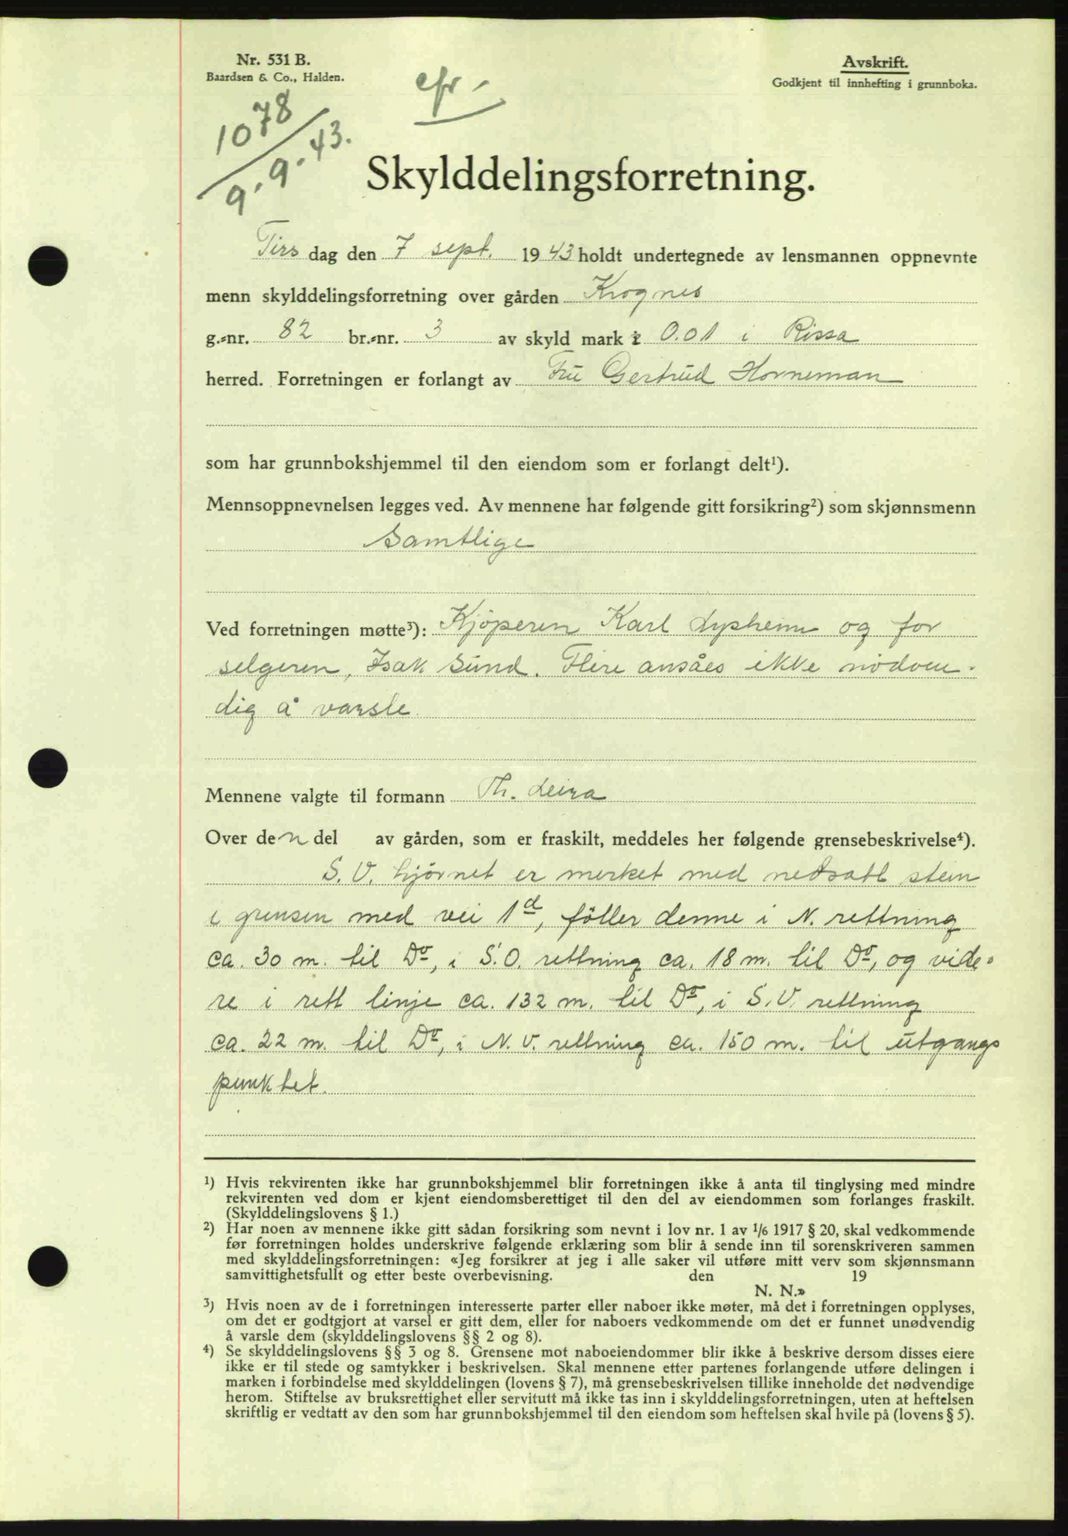 Nr. 531 B.
Baardsen & Co., Halden.
Avskrift.
Godkjent til innhefting i grunnboka.
cfr.
1078
9.-9.-43.
Skylddelingsforretning.
Tirsdag den 7 sept. 1943 holdt undertegnede av lensmannen oppnevnte
menn skylddelingsforretning over gården Krognes
g.-nr. 82 br.-nr. 3 av skyld mark 0.01 i Rissa
herred. Forretningen er forlangt av Fru Gertrud Horneman
som har grunnbokshjemmel til den eiendom som er forlangt delt¹).
Mennsoppnevnelsen legges ved. Av mennene har følgende gitt forsikring²) som skjønnsmenn
Samtlige
Ved forretningen møtte³): Kjöperen Karl Lysheim og for
selgeren, Isak Sund. Flere ansåes ikke nödven-
dig å varsle
Mennene valgte til formann Th. Leira
Over den del av gården, som er fraskilt, meddeles her følgende grensebeskrivelse⁴).
S.V. hjörnet er merket med nedsatt stein
i grensen med vei 1 d, föller denne i N. rettning
ca. 30 m. til Do, i S.O. rettning ca. 18 m. til Do, og vide-
re i rett linje ca. 132 m. til Do, i S.V. rettning
ca. 22 m. til Do, i N.V. rettning ca. 150 m. til utgangs
punktet.
¹) Hvis rekvirenten ikke har grunnbokshjemmel blir forretningen ikke å anta til tinglysing med mindre
rekvirenten ved dom er kjent eiendomsberettiget til den del av eiendommen som forlanges fraskilt.
(Skylddelingslovens § 1.)
²) Har noen av mennene ikke gitt sådan forsikring som nevnt i lov nr. 1 av 1/6 1917 § 20, skal vedkommende
før forretningen holdes underskrive følgende erklæring som blir å sende inn til sorenskriveren sammen
med skylddelingsforretningen: «Jeg forsikrer at jeg i alle saker vil utføre mitt verv som skjønnsmann
samvittighetsfullt og etter beste overbevisning. den 19
N. N.»
³) Hvis noen av de i forretningen interesserte parter eller naboer ikke møter, må det i forretningen opplyses,
om det er godtgjort at varsel er gitt dem, eller for naboers vedkommende om det er funnet unødvendig
å varsle dem (skylddelingslovens §§ 2 og 8).
⁴) Se skylddelingslovens §§ 3 og 8. Grensene mot naboeiendommer blir ikke å beskrive dersom disses eiere
ikke er til stede og samtykker i beskrivelsen. Skal mennene etter partenes forlangende utføre delingen i
marken i forbindelse med skylddelingen (lovens § 7), må grensebeskrivelsen tillike inneholde det nødvendige
herom. Stiftelse av bruksrettighet eller servitutt må ikke tas inn i skylddelingsforretningen, uten at heftelsen
skriftlig er vedtatt av den som har grunnbokshjemmel til den eiendom som heftelsen skal hvile på (lovens § 5).